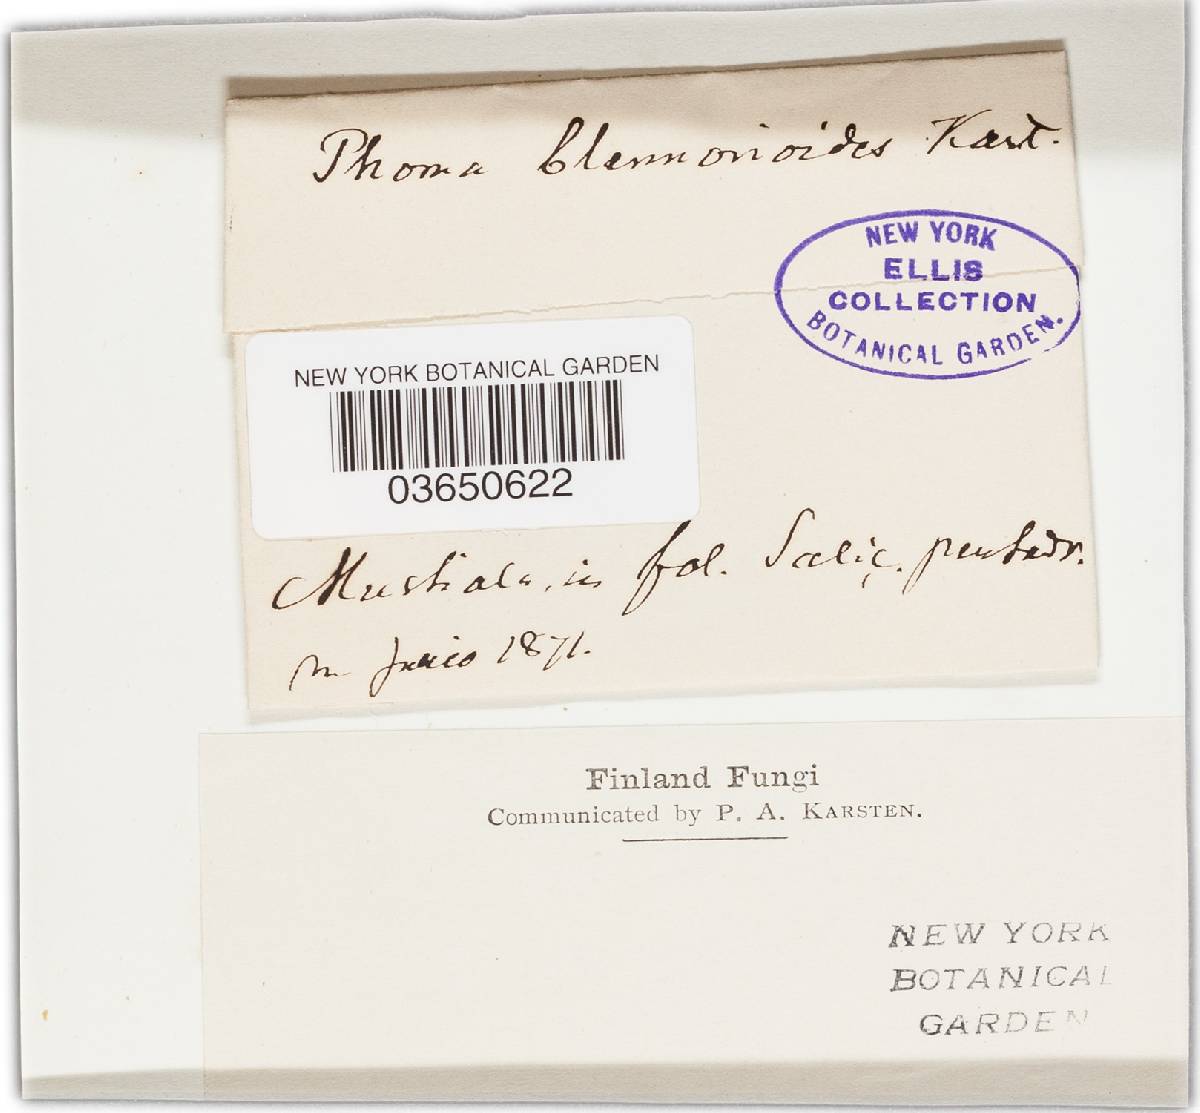 Phoma blennorioides Karst.
NEW YORK
ELLIS
COLLECTION
BOTANICAL GARDEN.
NEW YORK BOTANICAL GARDEN
03650622
Mustiala, in fol. Salic. pentadr.
m. Junio 1871.
Finland Fungi
Communicated by P. A. KARSTEN.
NEW YORK
BOTANICAL
GARDEN